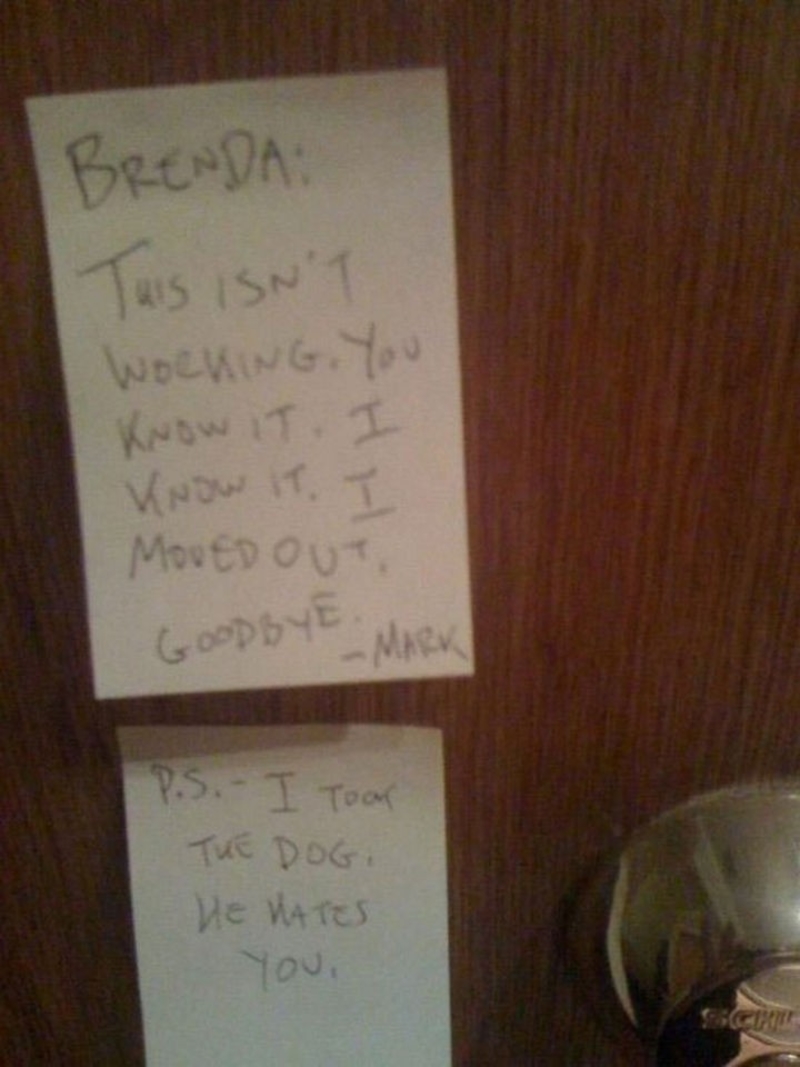 BRENDA:
THIS ISN'T
WORKING. YOU
KNOW IT. I
KNOW IT. I
MOVED OUT.
GOODBYE.
-MARK
P.S.- I TOOK
THE DOG.
HE HATES
YOU.
SCHL